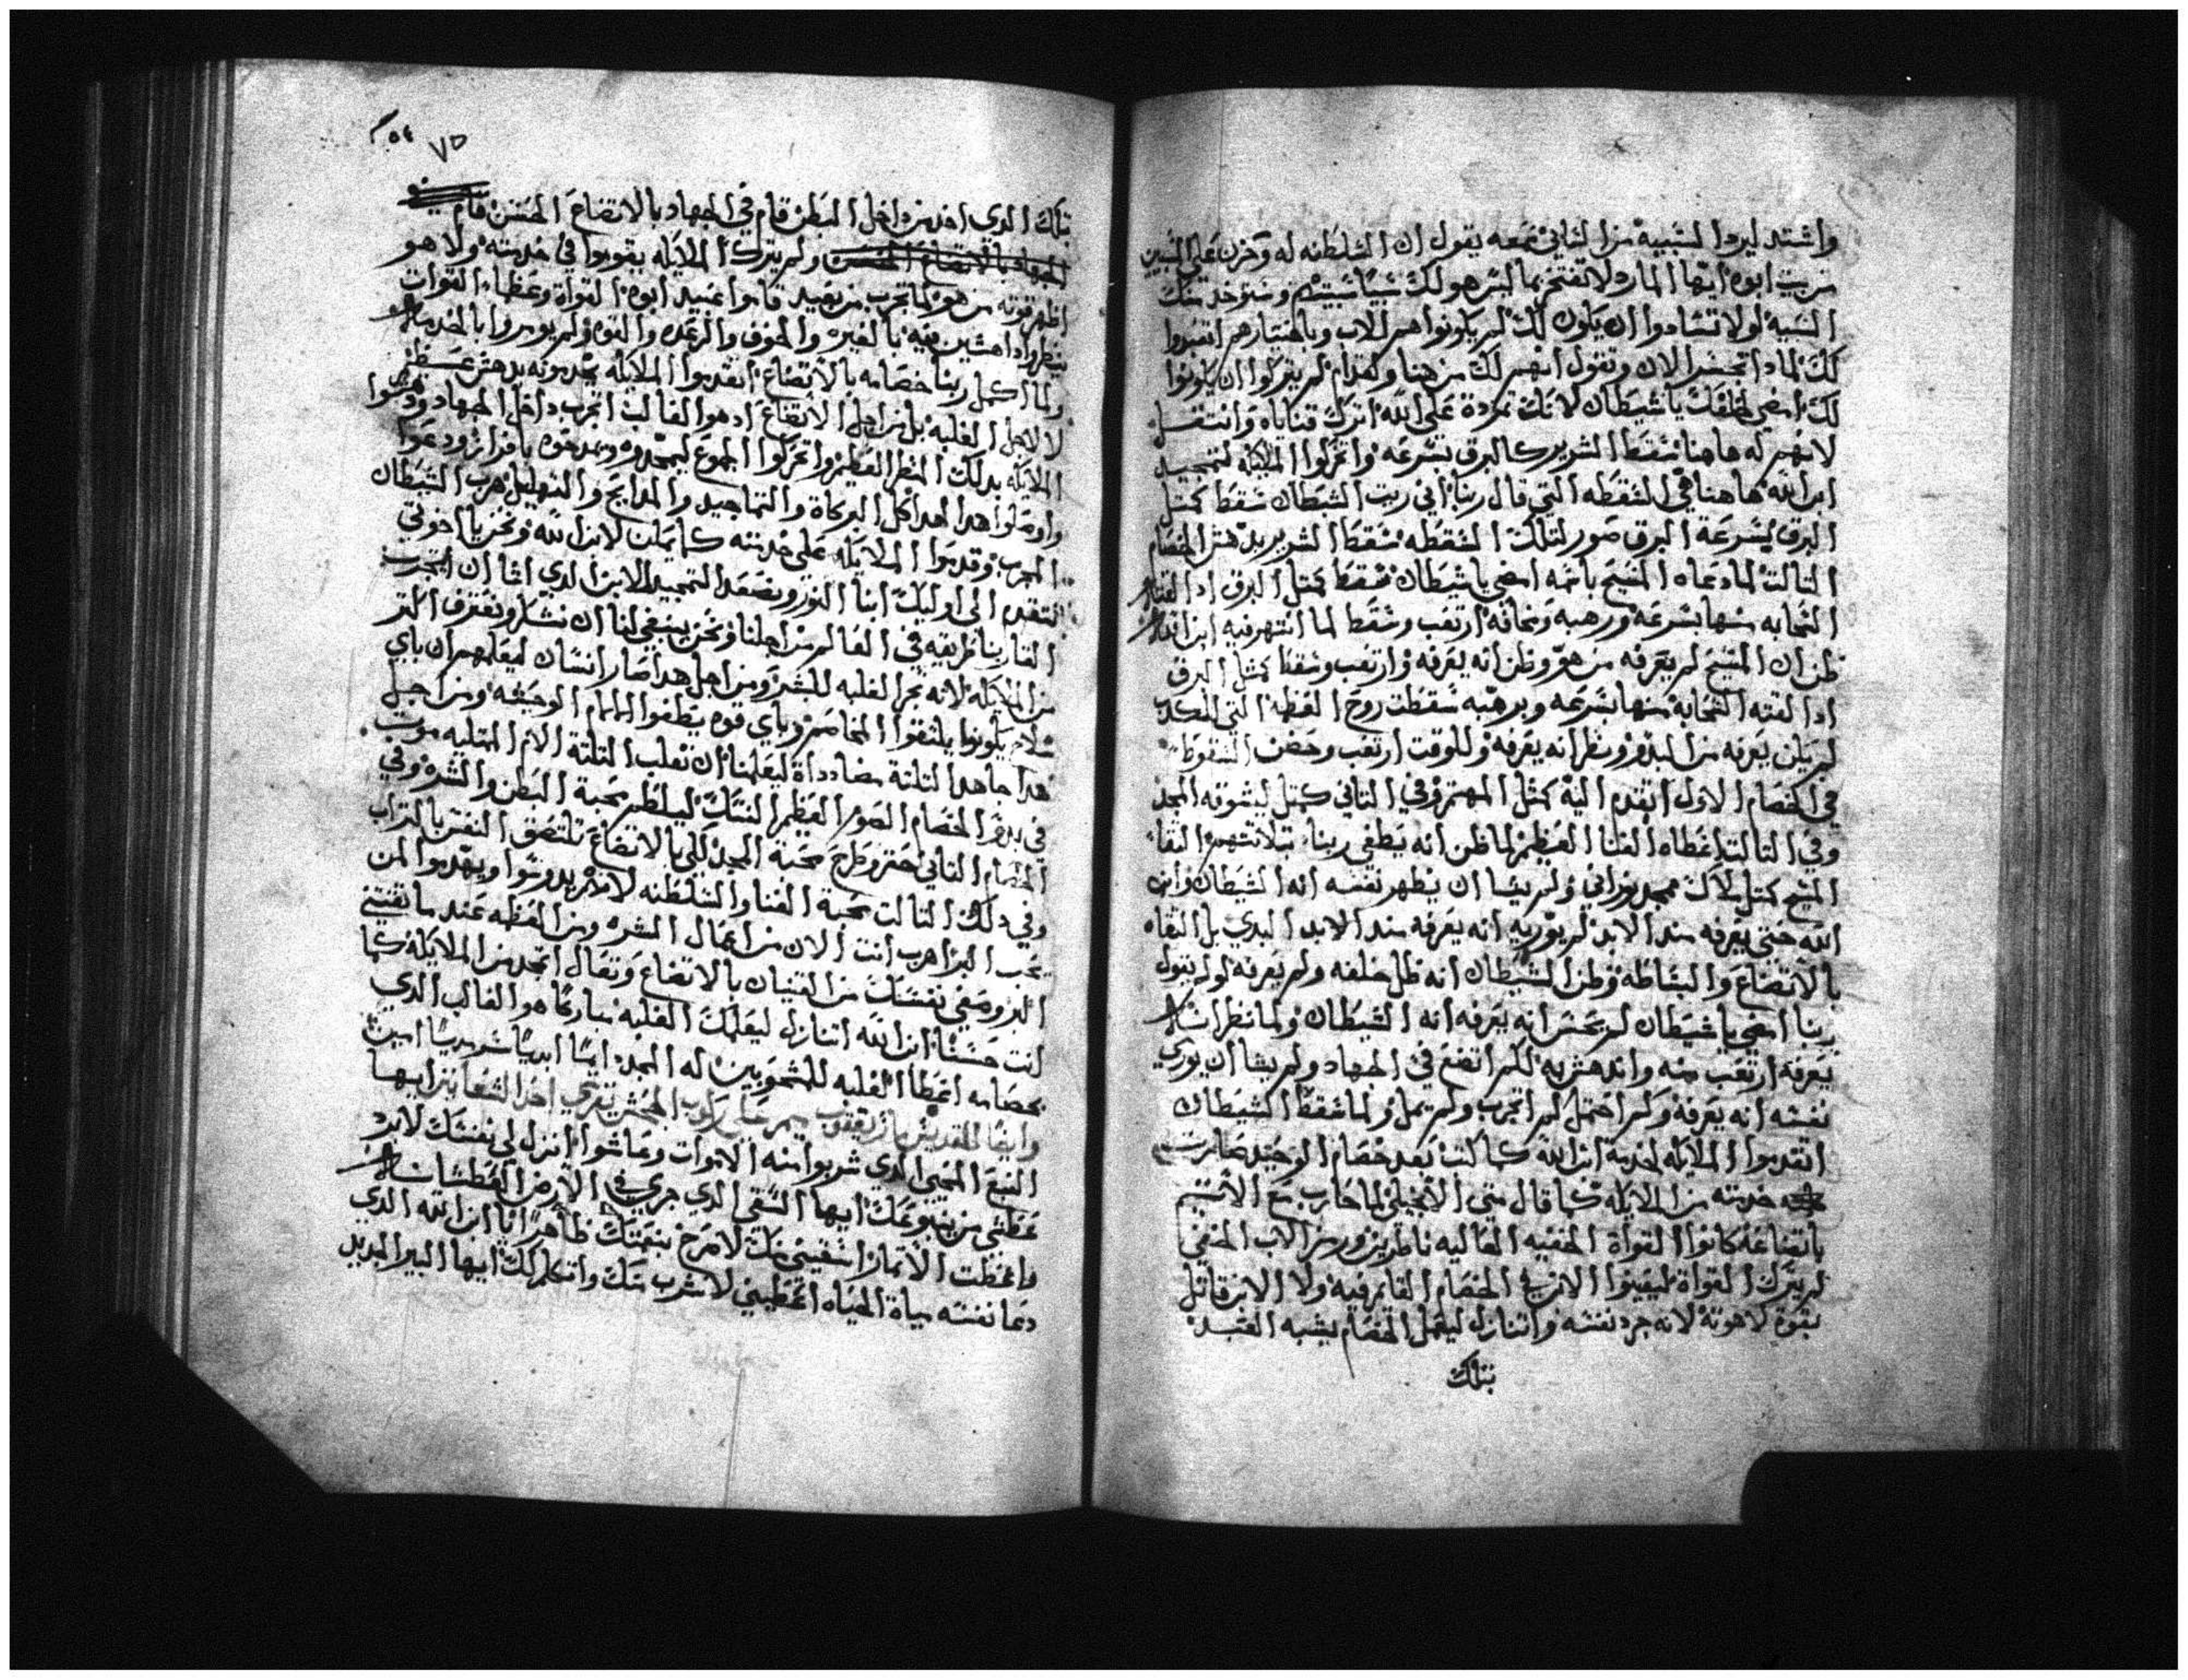 واشتد ليرد السبيه من التاني سمعه يقول ان السلطنه له وحزن علي السبيين
من بيت ابوه ايها المارد لا تفتخر بما ليس هو لك سبيًا سبيتهم وستوخد منك
السبيه لولا تشادوا ان يكون لك لم يكونوا هم للاب وباختيارهم
لك لمادا تخسر الان وتقول انهم لك من هنا ولقدام لم يتركوا ان يكونوا
لك امضي لخلفك يا شيطان لانك تمردة علي الله اترك قناياه وانتقل
لانهم له هاهنا سقط الشرير كالبرق بسرعه واتحركوا الملايكه لتمجيد
ابن الله هاهنا هي السقطه التي قال ربنا اني ريت الشيطان سقط كمتل
البرق بسرعة البرق صور لتلك السقطه سقط الشرير بدهش الخصام
التالت لما دعاه المسيح باسمه امضي يا شيطان سقط كمتل البرق ادا القته
السحابه منها بسرعه ورهبه ومخافه ارتعب وسقط لما انتهر فيه ابن الله
ظن ان المسيح لم يعرفه من هو وظن انه يعرفه وارتعب وسقط كمتل البرق
ادا القته السحابه منها بسرعه وبرهبه سقطت روح العظمه التي
لم يكن يعرفه من البدو ونظر انه يعرفه وللوقت ارتعب وحضن السقوط
في الخصام الاول اتقدم اليه كمتل المهتم وفي التاني كمتل ليشوقه المجد
وفي التالت اعطاه الغنا العظيم لما ظن انه يطغي ربنا بتلاتتهم التقا
المسيح كمتل ملاك ممجد نوراني ولم يشا ان يظهر نفسه انه الشيطان وابن
الله حتي يعرفه مند الابد لم يوريه انه يعرفه مند الابد البدي بل التقاه
بالاتضاع والبساطه وظن الشيطان انه ظل خلفه ولم يعرفه لولم يقول
ربنا امضي يا شيطان لم يحس انه يعرفه انه الشيطان ولما نظر انه
يعرفه ارتعب منه واندهش به لكم اتضع في الجهاد ولم يشا ان يوري
نفسه انه يعرفه وكم احتمل لم اتجرب ولم يمل ولما سقط الشيطان
اتقدموا الملايكه لخدمة ابن الله كما كتب بعد خصام الوحيد صارت
خدمته من الملايكه كما قال متي الانجيلي لما حارب مع الاتيم
باتضاعه كانوا القواة الخفيه العاليه ناظرين ورمز الاب الخفي
لم يترك القواة ليعينوا الابن في الخصام القايم فيه ولا الابن قاتل
بقوة لاهوته لانه جرد نفسه واتنازل ليكمل الخصام بشبه العبد
بتلك
٧٥ ٥٤
بتلك الدي اخد من داخل البطن قام في الجهاد بالاتضاع الحسن قام
الجهاد بالاتضاع الحسن ولم يترك الملايكه يقوموا في خدمته ولا هو
اظهر قوته من هو لما تجرب من بعيد قاموا عبيد ابوه القواة وعظما القوات
ينظروا داهشين فيه بالغيره والخوف والرعده والقوه ولم يومروا بالخدمه
ولما اكمل ربنا خصامه بالاتضاع اتقدموا الملايكه يخدموه بدهش عظيم
لا لاجل الغلبه بل من اجل الاتضاع اد هوا الغالب اتجرب داخل الجهاد ودهشوا
الملايكه بدلك المنظر العظيم واتحركوا الجموع ليمجدوه ومدحوه بافراز ودعوا
واوصلوا هدا اهدا كل البركاة والتماجيد والمدايح والتهليل هرب الشيطان
المجرب وقدموا الملايكه علي خدمته كما يمكن لابن الله ونحن يا اخوتي
لنتقدم الي اوليك ابنا النور ونصعد التمجيد للابن الدي اتا ان اتجرب
القا ربنا طريقه في العالم من اجلنا ونحن ينبغي لنا ان نشكر ونعترف اكتر
من الملايكه لانه جر الغلبه للبشر ومن اجل هدا صار انسان ليعلمهم ان باي
سلاح يكونوا يلتقوا المخاصم وباي قوه يطفوا الالام الوحشه ومن اجل
هدا جاهد التلتة مضاددة ليعلمنا ان نغلب التلتة الام الممتليه موت
في بدو الخصام الصوم العظيم النسك ليبلط محبة البطن والشره وفي
الخصام التاني احتقر وطرح محبة المجد لكي بالاتضاع تلتصق النفس بالتراب
وفي دلك التالت محبة الغنا والسلطنه لانهم يدوسوا ويهدموا لمن
يحب البر اهرب انت الان من اعمال الشره ومن العظمه عند ما تقتني
البر وصفي نفسك من القنيان بالاتضاع وتعال اتمجد من الملايكه كما
انت حسنًا ابن الله اتنازل ليعلمك الغلبه مباركًا هوا الغالب الدي
بخصامه اعطا الغلبه للمسحوبين له المجد ايمًا ابديًا سرمديًا امين
وايضًا للقديس مار يعقوب ميمر علي ركوب الجحش
النبع المحيي الدي شربوا منه الاموات وعاشوا انزل لي نفسك لابرد
عطشي من ينبوعك ايها السقي الدي جري في الارض العطشانه
واعطت الاتمار اسقيني منك لامرح بنعمتك ظاهرًا يا ابن الله الدي
دعا نفسه مياة الحياه اعطيني لاشرب منك واتكلم لك ايها البير الجديد